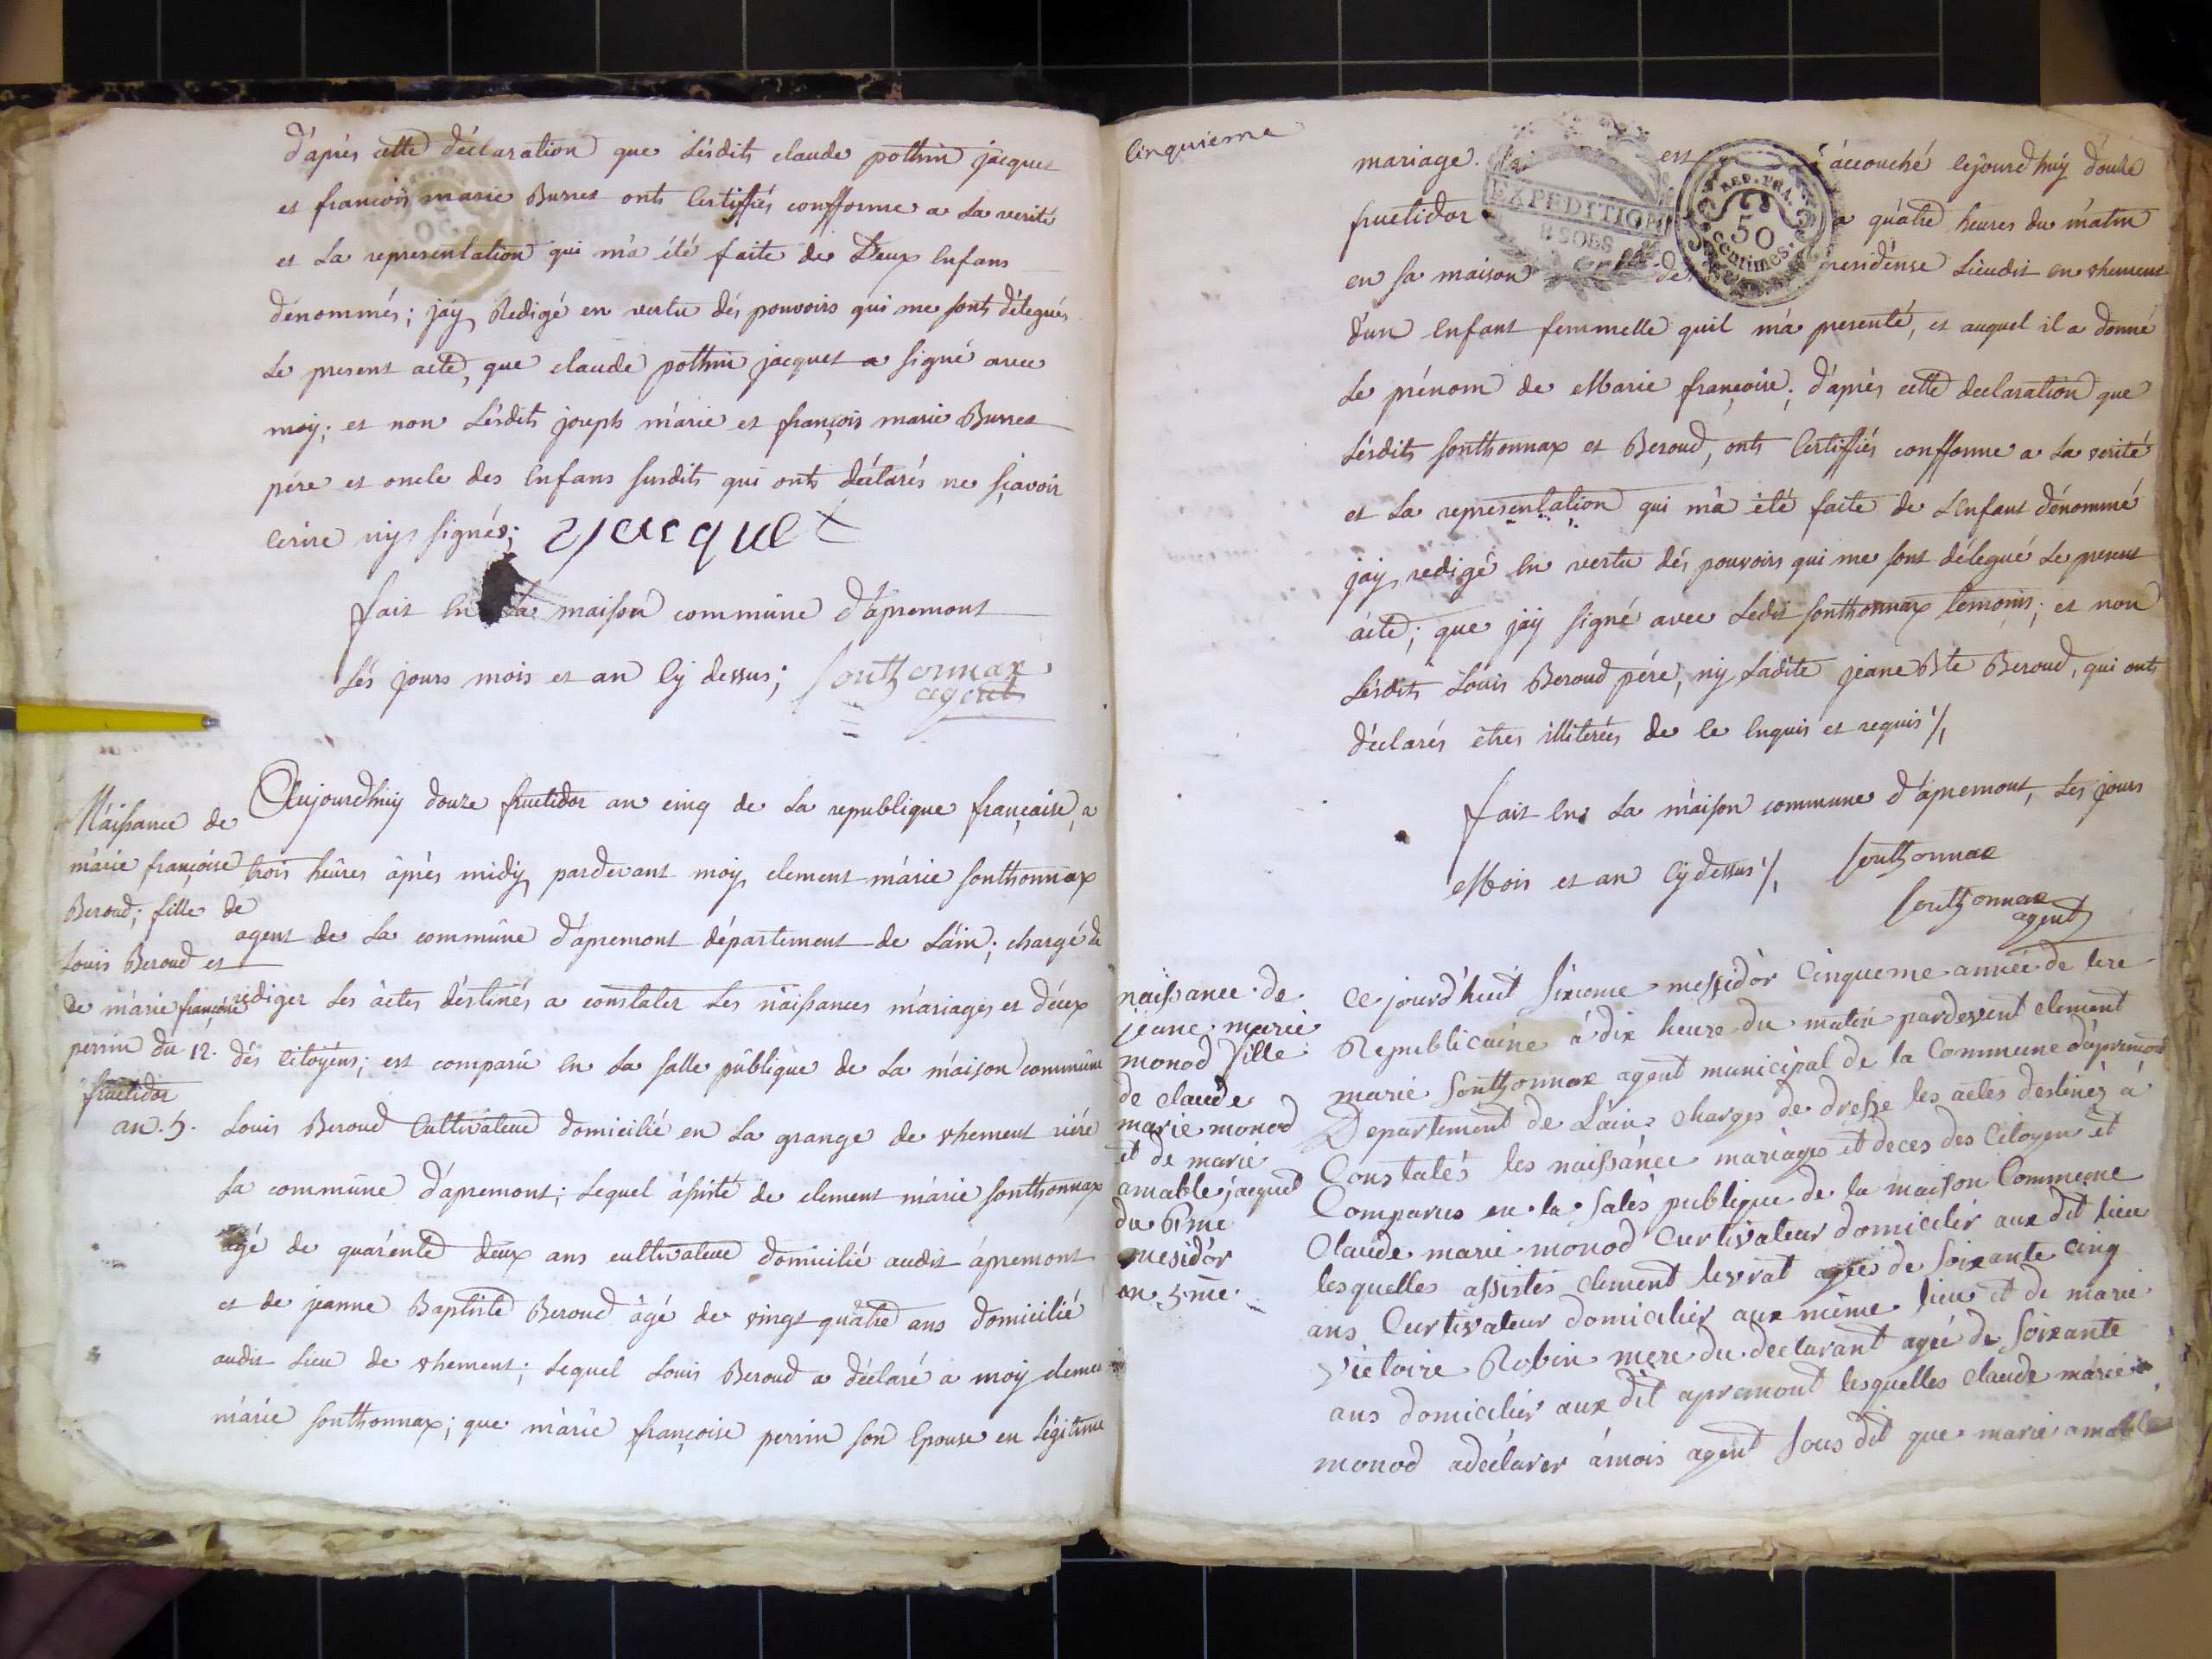 d'après cette déclaration que lésdits claude pothin jacquet
et francois marie Burret onts certiffiés confforme a la verité
et la representation qui m'a été faite de deux enfans
dénommés; j'ay Redigé en vertu dés pouvoirs qui me sonts délegués
le present acte, que claude pothin jacquet a signé avec
moy; et non lésdits joseph márie et françois marie Burret
pére et oncle des enfans susdits qui onts déclarés ne sçavoir
écrire ny signés; Jacquet
fait en la maison commune d'apremont
lés jours mois et an cy dessus; Sonthonnax
agent
Náissance de
márie françoise
Beroud; fille de
Louis Beroud et
de márie françoise
perrin du 12.
fructidor
an. 5.
Aujourdhuy douze fructidor an cinq de la republique française, a
trois heûres áprés midy pardevant moy clement márie sonthonnax
agent de la commûne d'apremont département de l'áin; chargé de
rediger les áctes déstinés a constater les náissances máriages et décex
dés citoyéns; est comparû en la salle pûblique de la máison commûne
Louis Beroud Cultivateur domicilié en la grange de vhement riére
la commûne d'apremont; lequel ássisté de clement márie sonthonnax
agé de quárente deux ans cultivateur domicilié audit ápremont
et de jeanne Baptiste Beroud âgé de vingt quâtre ans domicilié
audit lieu de vhement; lequel Louis Beroud a déclaré a moy clement
márie sonthonnax; que márie françoise perrin son épouse en légitime
Cinquieme
mariage est áccouché cejourdhuy douze
fructidor a quátre heures du mátin
en sa maison de residense lieudit en vhement
d'un enfant femmelle quil m'a presenté, et auquel il a donné
le prénom de Marie françoise; d'aprés cette declaration que
lésdits sonthonnax et Beroud, onts certiffiés confforme a la verité
et la representation qui m'a été faite de l'enfant dénommé
j'ay redigé en vertu dés pouvoirs qui me sont délegué le present
ácte; que j'ay signé avec ledit sonthonnax temoins; et non
lésdits Louis Beroud pére, ny ladite jeane Bte Beroud, qui onts
déclarés êtres illiterées de ce enquis et requis
fait en la máison commune d'apremont, les jours
Mois et an cy dessus Sonthonnax
Sonthonnax
agent
EXPEDITION
REP. FRA.
50
centimes
naissance de
jeane marie
monod fille
de claude
marie monod
et de marie
amable jacquet
du 6me
mesidor
an 5me
ce jourd'huit sixieme messidor cinqueme année de lere
Republicaine à dix heure du matin pardevent clement
marie Sonthonnax agent municipal de la Commune d'apremond
Departement de Lain charges de dresse les actes destinés à
Constatés les naissance mariages et deces des Citoyen et
Comparus en la Sales publique de la maison Commeune
Claude marie monod Curtivateur domicilér aux dit lieu
lesquelles assistés clement levrat agée de soixante cinq
ans Curtivateur domicilier aux même lieu et de marie
victoire Robin mere du declarant agée de soixante
ans domicilier aux dit apremont lesquelles claude marie
monod adéclarer ámois agent sous dit que marie amable